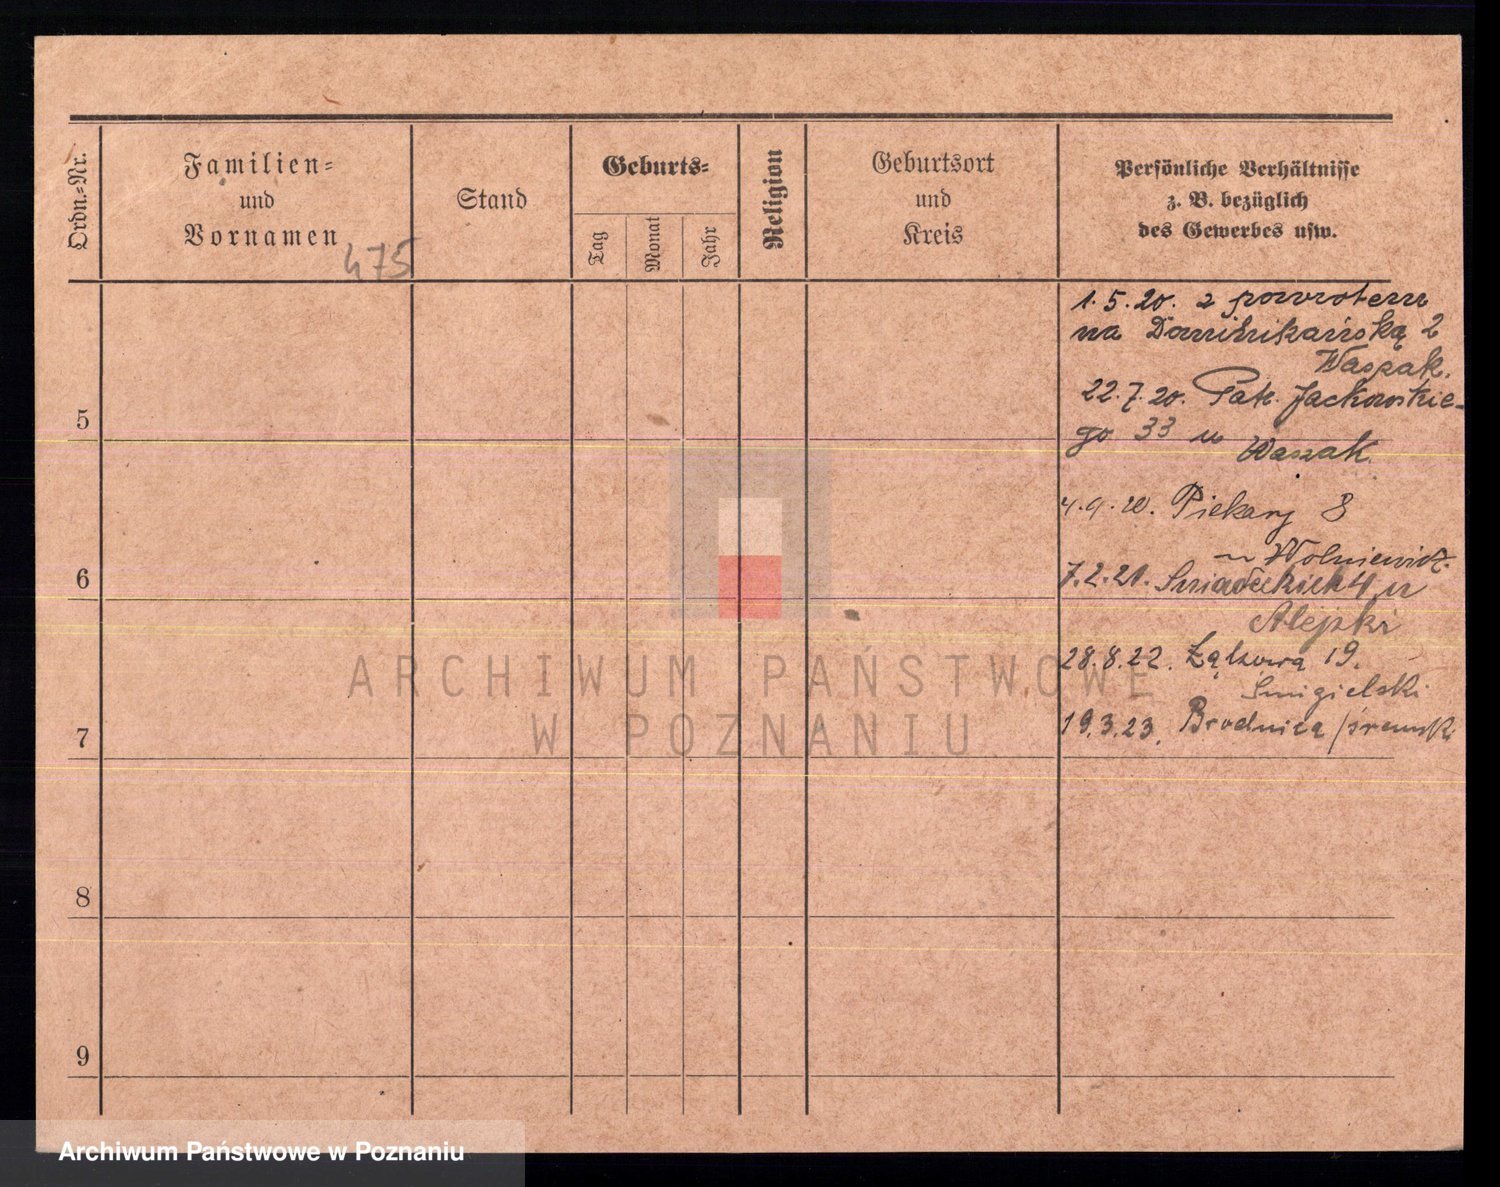 Ordn.=Nr.
Familien=
und
Vornamen
475
Stand
Geburts=
Tag
Monat
Jahr
Religion
Geburtsort
und
Kreis
Persönliche Verhältnisse
z. B. bezüglich
des Gewerbes usw.
1.5.20. z powrotem
na Dominikańską 2
Waszak.
22.7.20. Patr. Jackowskie-
go 33 u
Waszak
5
4.9.20. Piekary 8
u Wolniewicz.
7.2.21. Sniadeckich 4 u
Alejski
6
28.8.22. Łąkowa 19.
Smigielski
19.3.23. Brodnica /śremsk
7
8
9
ARCHIWUM PAŃSTWOWE
W POZNANIU
Archiwum Państwowe w Poznaniu